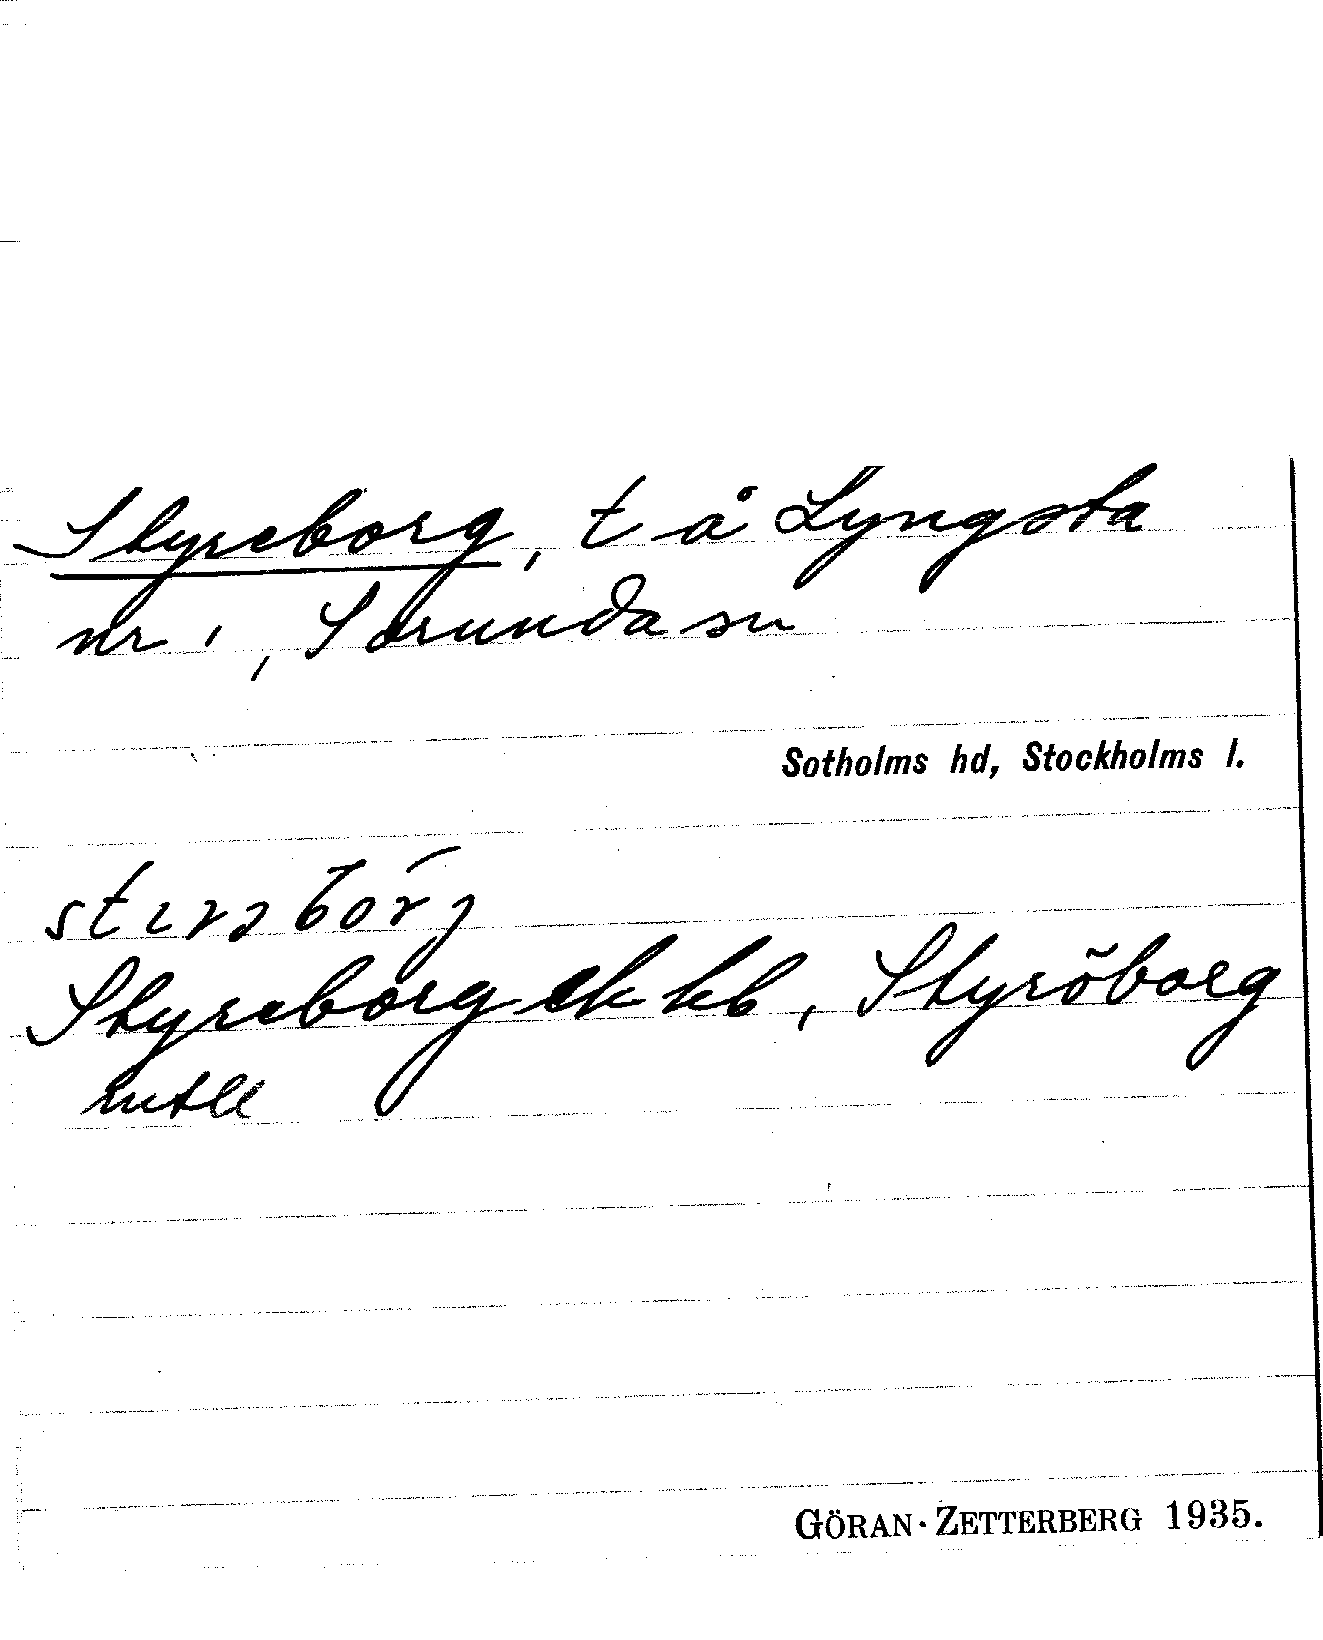 Styreborg, t å Lyngsta
nr 1, Sorunda sn
Sotholms hd, Stockholms l.
Styreborg ek kb, Styröborg
mtll
GÖRAN ZETTERBERG 1935.